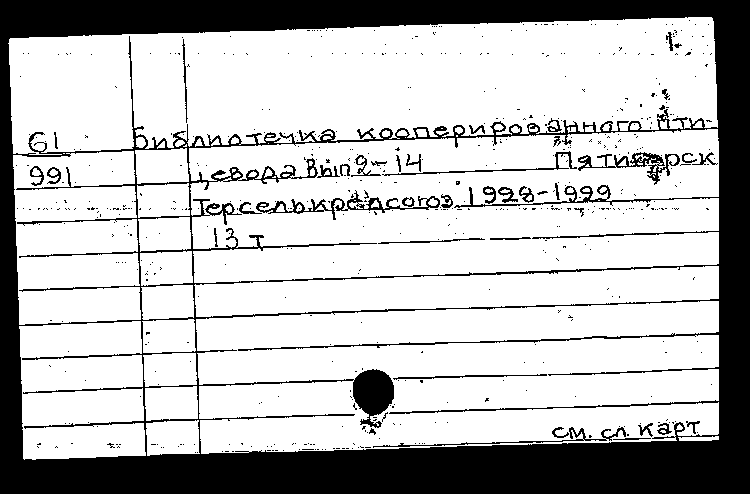 1.
61 Библиотечка кооперированного пти-
991 цевода Вып 2-14 Пятигорск
Терселькредсоюз 1928-1929
13 т
см. сл. карт